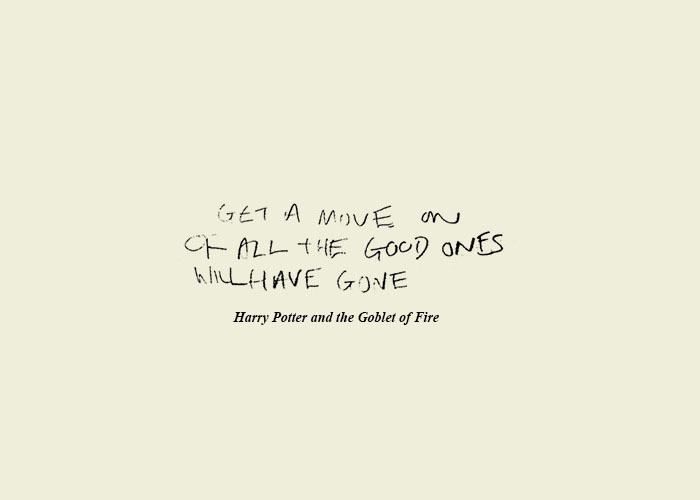 GET A MOVE ON
OF ALL THE GOOD ONES
WILL HAVE GONE
Harry Potter and the Goblet of Fire